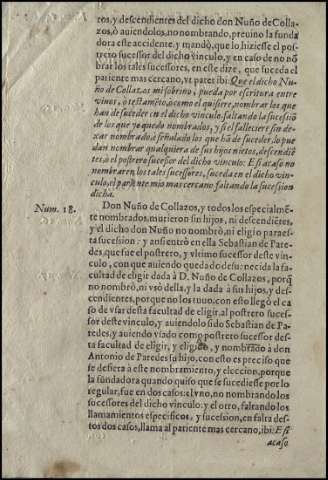 ros, y descendientes del dicho don Nuño de Colla-
zos, ò auiendolos, no nombrando, preuino la funda
dora este accidente, y mandò, que lo hiziesse el pos-
trero sucessor del dicho vinculo, y en caso de no nõ
brar los tales sucessores, en este dize, que suceda el
pariente mas cercano, vt patet ibi: Que el dicho Nu-
ño de Collazos mi sobrino, pueda por escritura entre
viuos, o testamẽto, o como el quisiere, nombrar los que
han de suceder en el dicho vinculo, faltando la sucessiõ
de los que yo quedo nombrados, y si el falleciere sin de-
xar nombrado a señalado los que hã de suceder, lo pue
dan nombrar qualquiera de sus hijos nietos, descendiẽ
tes, ò el postrero sucessor del dicho vinculo: E si acaso no
nombraren los tales sucessores, suceda en el dicho vin-
culo, el pariente mio mas cercano faltando la sucession
dicha.
Num. 18. Don Nuño de Collazos, y todos los especialmẽ-
te nombrados, murieron sin hijos, ni descendiẽtes,
y el dicho don Nuño no nombrò, ni eligio para es-
ta sucession: y assi entrò en ella Sebastian de Pare-
des, que fue el postrero, y vltimo sucessor deste vin-
culo, con que auiendo quedado desuanecida la fa-
cultad de eligir dada à D. Nuño de Collazos, porq̃
no nombrò, ni vsò della, y la dada à sin hijos, y des-
cendientes, porque no los tuuo, con esto llegò el ca
so de vsar desta facultad de eligir, al postrero suces-
sor deste vinculo, y auiendolo sido Sebastian de Pa-
redes, y auiendo vsado como postrero sucessor des-
ta facultad de eligir, y eligido, y nombrado à don
Antonio de Paredes su hijo, con esto es preciso que
se defiera à este nombramiento, y eleccion, porque
la fundadora quando quiso que se sucediesse por lo
regular, fue en dos casos: el vno, no nombrando los
sucessores del dicho vinculo: y el otro, faltando los
llamamientos especificos, y sucession, en falta des-
tos dos casos, llama al pariente mas cercano, ibi: E si
acaso